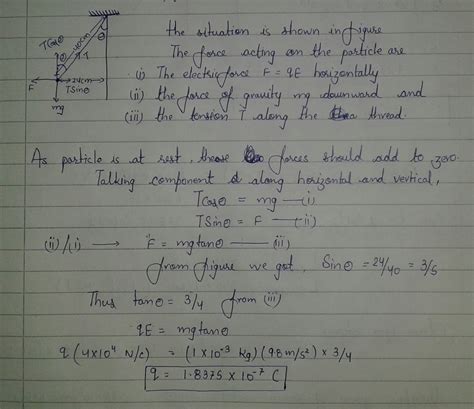 Tcosθ
θ
θ
40cm
T
F
24cm
Tsinθ
mg
the situation is shown in figure
The force acting on the particle are
(i) The electric force F = qE horizontally
(ii) the force of gravity mg downward and
(iii) the tension T along the thread.
As particle is at rest, these forces should add to zero.
Talking component along horizontal and vertical,
Tcosθ = mg —(i)
TSinθ = F —(ii)
(ii)/(i) → F = mg tanθ —(iii)
from figure we got, Sinθ = 24/40 = 3/5
Thus tanθ = 3/4 from (iii)
qE = mg tanθ
q (4x10⁴ N/c) = (1 x 10⁻³ kg) (9.8 m/s²) x 3/4
q = 1.8375 x 10⁻⁷ C